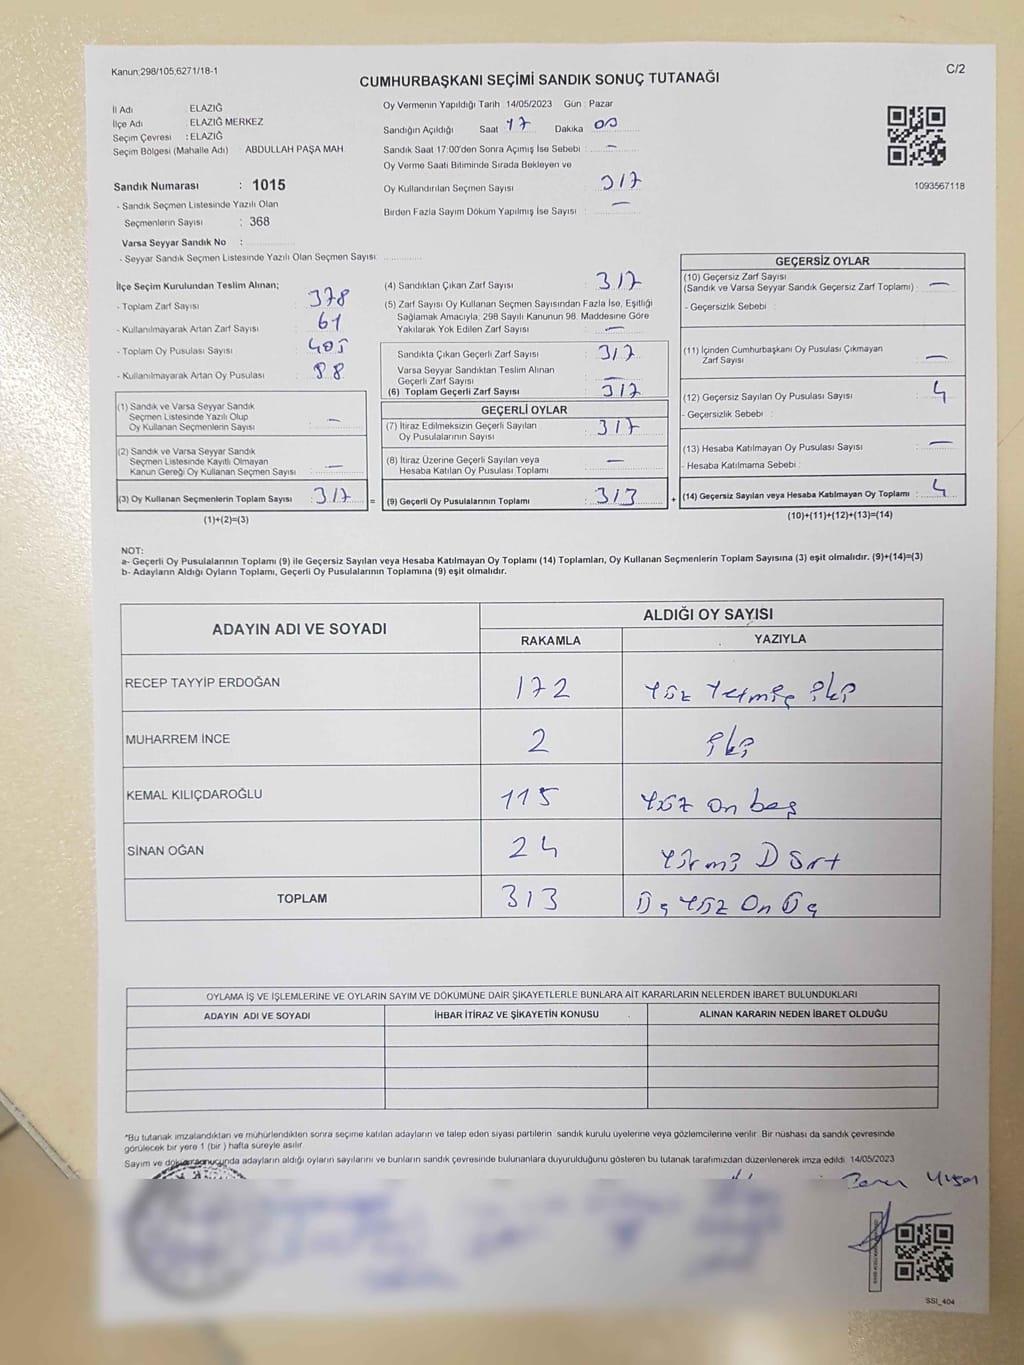 Kanun;298/105;6271/18-1
C/2
CUMHURBAŞKANI SEÇİMİ SANDIK SONUÇ TUTANAĞI
İl Adı : ELAZIĞ
İlçe Adı : ELAZIĞ MERKEZ
Seçim Çevresi : ELAZIĞ
Seçim Bölgesi (Mahalle Adı) : ABDULLAH PAŞA MAH.
Sandık Numarası : 1015
- Sandık Seçmen Listesinde Yazılı Olan
Seçmenlerin Sayısı : 368
Varsa Seyyar Sandık No :
- Seyyar Sandık Seçmen Listesinde Yazılı Olan Seçmen Sayısı:
Oy Vermenin Yapıldığı Tarih : 14/05/2023 Gün : Pazar
Sandığın Açıldığı Saat 17 Dakika 00
Sandık Saat 17:00'den Sonra Açımış İse Sebebi : —
Oy Verme Saati Bitiminde Sırada Bekleyen ve
Oy Kullandırılan Seçmen Sayısı : 317
Birden Fazla Sayım Döküm Yapılmış İse Sayısı : —
1093567118
İlçe Seçim Kurulundan Teslim Alınan;
- Toplam Zarf Sayısı : 378
- Kullanılmayarak Artan Zarf Sayısı : 61
- Toplam Oy Pusulası Sayısı : 405
- Kullanılmayarak Artan Oy Pusulası : 88
(1) Sandık ve Varsa Seyyar Sandık
Seçmen Listesinde Yazılı Olup
Oy Kullanan Seçmenlerin Sayısı : —
(2) Sandık ve Varsa Seyyar Sandık
Seçmen Listesinde Kayıtlı Olmayan
Kanun Gereği Oy Kullanan Seçmen Sayısı : —
(3) Oy Kullanan Seçmenlerin Toplam Sayısı : 317 =
(1)+(2)=(3)
(4) Sandıktan Çıkan Zarf Sayısı : 317
(5) Zarf Sayısı Oy Kullanan Seçmen Sayısından Fazla İse, Eşitliği
Sağlamak Amacıyla; 298 Sayılı Kanunun 98. Maddesine Göre
Yakılarak Yok Edilen Zarf Sayısı : —
Sandıkta Çıkan Geçerli Zarf Sayısı : 317
Varsa Seyyar Sandıktan Teslim Alınan
Geçerli Zarf Sayısı : —
(6) Toplam Geçerli Zarf Sayısı : 317
GEÇERLİ OYLAR
(7) İtiraz Edilmeksizin Geçerli Sayılan
Oy Pusulalarının Sayısı : 317
(8) İtiraz Üzerine Geçerli Sayılan veya
Hesaba Katılan Oy Pusulası Toplamı : —
(9) Geçerli Oy Pusulalarının Toplamı : 313 +
GEÇERSİZ OYLAR
(10) Geçersiz Zarf Sayısı
(Sandık ve Varsa Seyyar Sandık Geçersiz Zarf Toplamı) : —
- Geçersizlik Sebebi :
(11) İçinden Cumhurbaşkanı Oy Pusulası Çıkmayan
Zarf Sayısı : —
(12) Geçersiz Sayılan Oy Pusulası Sayısı : 4
- Geçersizlik Sebebi :
(13) Hesaba Katılmayan Oy Pusulası Sayısı : —
- Hesaba Katılmama Sebebi :
(14) Geçersiz Sayılan veya Hesaba Katılmayan Oy Toplamı : 4
(10)+(11)+(12)+(13)=(14)
NOT:
a- Geçerli Oy Pusulalarının Toplamı (9) ile Geçersiz Sayılan veya Hesaba Katılmayan Oy Toplamı (14) Toplamları, Oy Kullanan Seçmenlerin Toplam Sayısına (3) eşit olmalıdır. (9)+(14)=(3)
b- Adayların Aldığı Oyların Toplamı, Geçerli Oy Pusulalarının Toplamına (9) eşit olmalıdır.
ADAYIN ADI VE SOYADI
ALDIĞI OY SAYISI
RAKAMLA YAZIYLA
RECEP TAYYİP ERDOĞAN 172 Yüz Yetmiş iki
MUHARREM İNCE 2 iki
KEMAL KILIÇDAROĞLU 115 Yüz on beş
SİNAN OĞAN 24 Yirmi Dört
TOPLAM 313 Üç Yüz On Üç
OYLAMA İŞ VE İŞLEMLERİNE VE OYLARIN SAYIM VE DÖKÜMÜNE DAİR ŞİKAYETLERLE BUNLARA AİT KARARLARIN NELERDEN İBARET BULUNDUKLARI
ADAYIN ADI VE SOYADI İHBAR İTİRAZ VE ŞİKAYETİN KONUSU ALINAN KARARIN NEDEN İBARET OLDUĞU
*Bu tutanak imzalandıktan ve mühürlendikten sonra seçime katılan adayların ve talep eden siyasi partilerin sandık kurulu üyelerine veya gözlemcilerine verilir. Bir nüshası da sandık çevresinde
görülecek bir yere 1 (bir) hafta süreyle asılır.
Sayım ve döküm sonucunda adayların aldığı oyların sayılarını ve bunların sandık çevresinde bulunanlara duyurulduğunu gösteren bu tutanak tarafımızdan düzenlenerek imza edildi. 14/05/2023
SSI_404